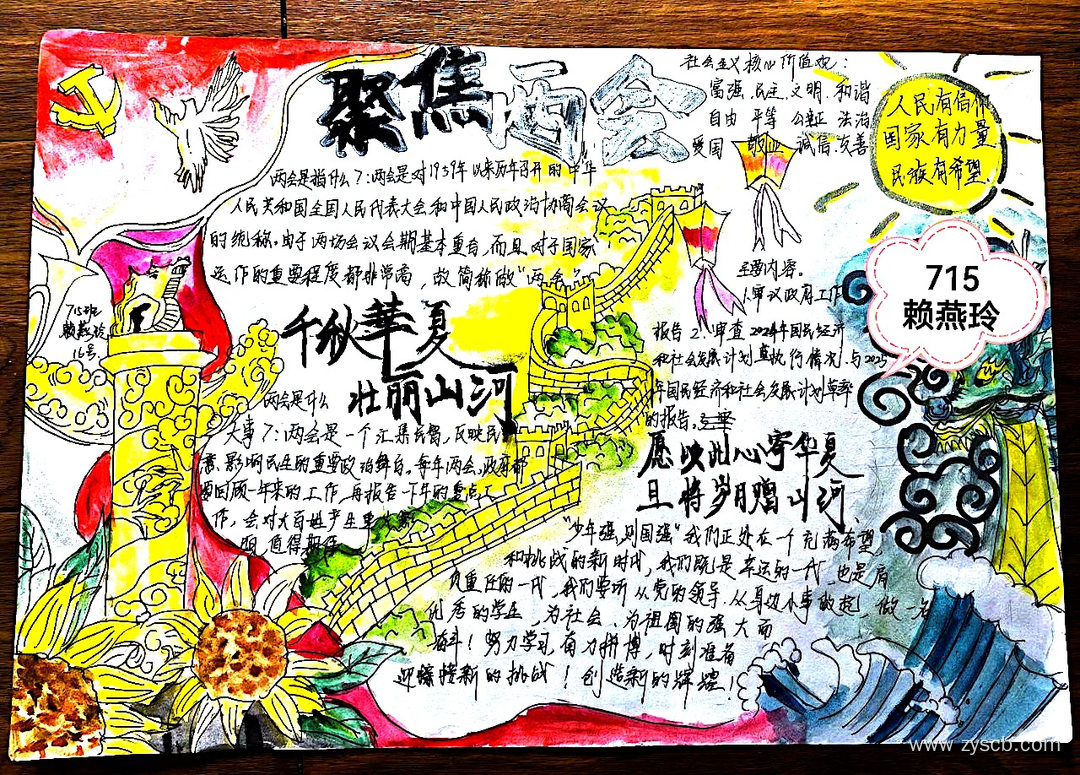 聚焦两会
社会主义核心价值观:
富强 民主 文明 和谐
自由 平等 公正 法治
爱国 敬业 诚信 友善
人民有信仰
国家有力量
民族有希望.
两会是指什么?:两会是对1959年以来历年召开的中华
人民共和国全国人民代表大会和中国人民政治协商会议
的统称。由于两场会议会期基本重合,而且对于国家
运作的重要程度都非常高,故简称做"两会"
千秋華夏
壮丽山河
715班
赖燕玲
16号
主要内容。
1.审议政府工作
报告 2.审查2024年国民经济
和社会发展计划草执行情况与2025
年国民经济和社会发展计划草率
的报告。
715
赖燕玲
两会是什么
大事?:两会是一个汇集
意,影响民生的重要政治舞台。每年两会,政府都
要回顾一年来的工作,再报告下年的重点工
作,会对大百姓产生重大影
响,值得期待
愿以此心寄华夏
且将岁月赠山河.
"少年强,则国强"我们正处在一个充满希望,
和挑战的新时代,我们既是幸运的一代 也是肩
负重任的一代,我们要听从党的领导.从身边小事做起,做一名
优秀的学生,为社会、为祖国的强大而
奋斗!努力学习,奋力拼博,时刻准备
迎接新的挑战!创造新的辉煌!
www.zyscb.com